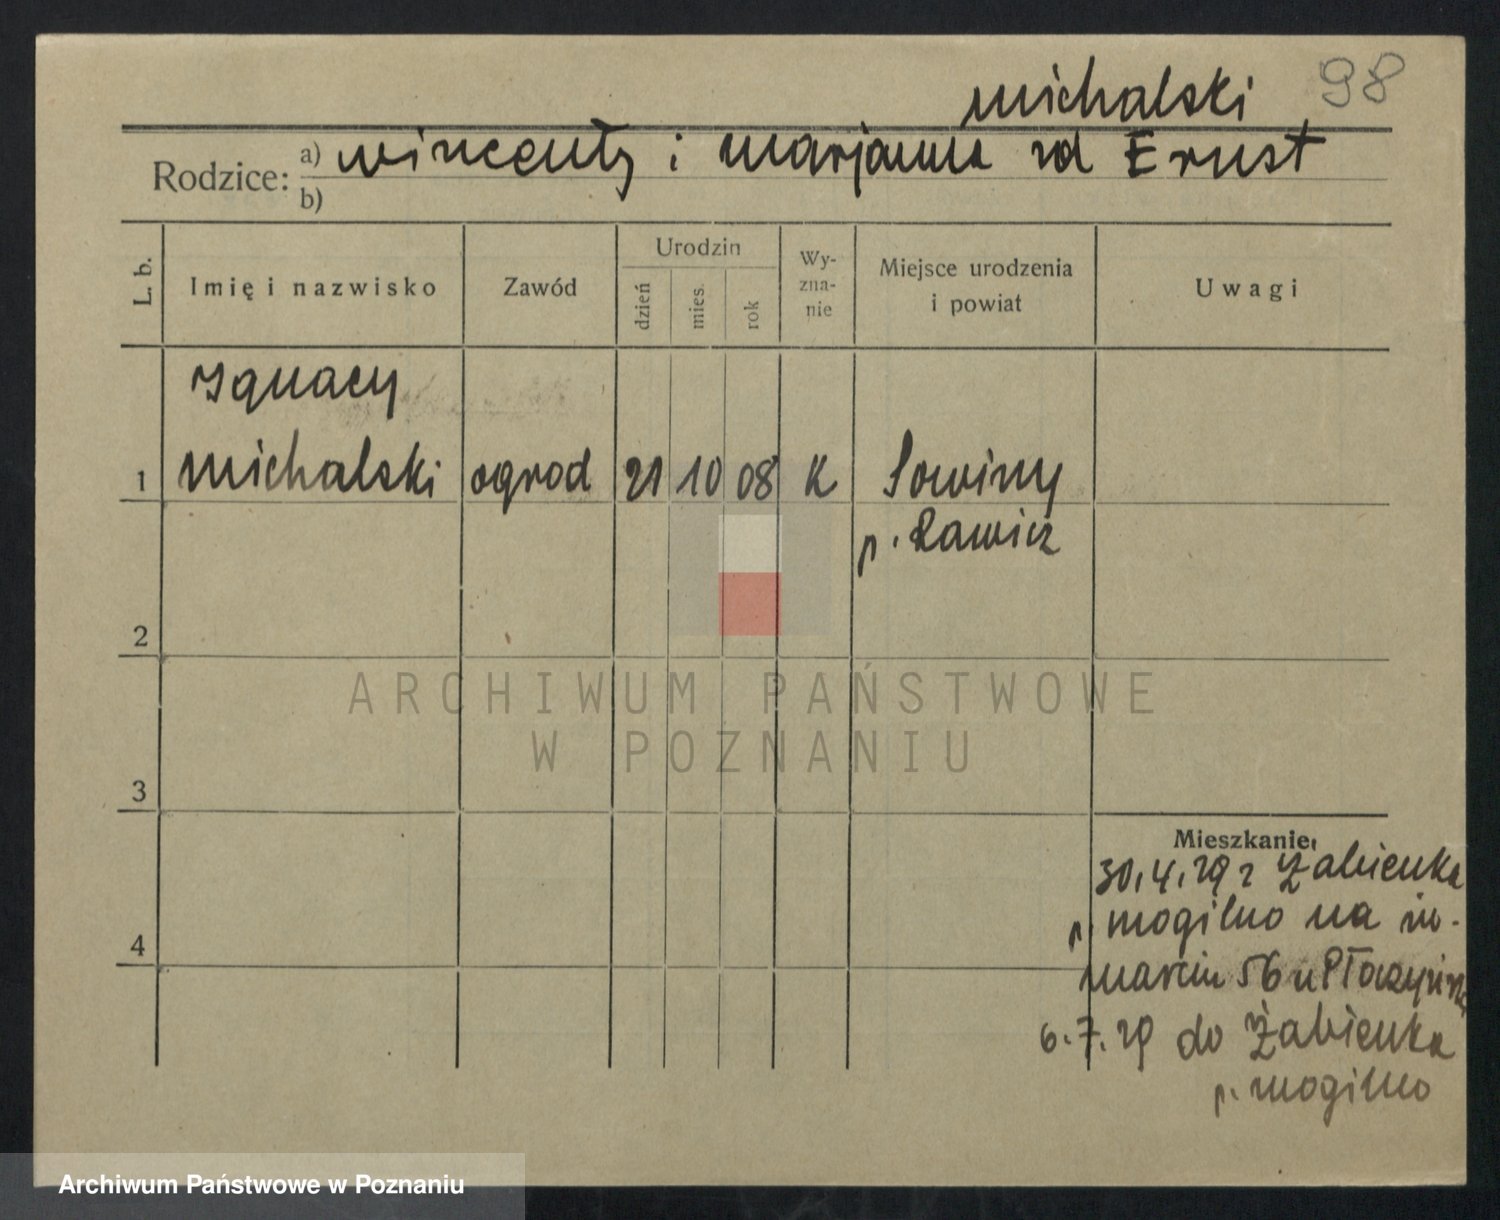 98
michalski
Rodzice: a) wincenty i marjanna rod Ernst
b)
L. b.
Imię i nazwisko
Zawód
Urodzin
dzień
mies.
rok
Wy-
zna-
nie
Miejsce urodzenia
i powiat
Uwagi
Ignacy
1 michalski ogrod 21 10 08 K Sowiny
p. Rawicz
2
ARCHIWUM PAŃSTWOWE
W POZNANIU
3
Mieszkanie:
30.4.29 z Żabienka
p. mogilno na sw.
4
marcin 56 u
6.7.29 do Żabienka
p. mogilno
Archiwum Państwowe w Poznaniu